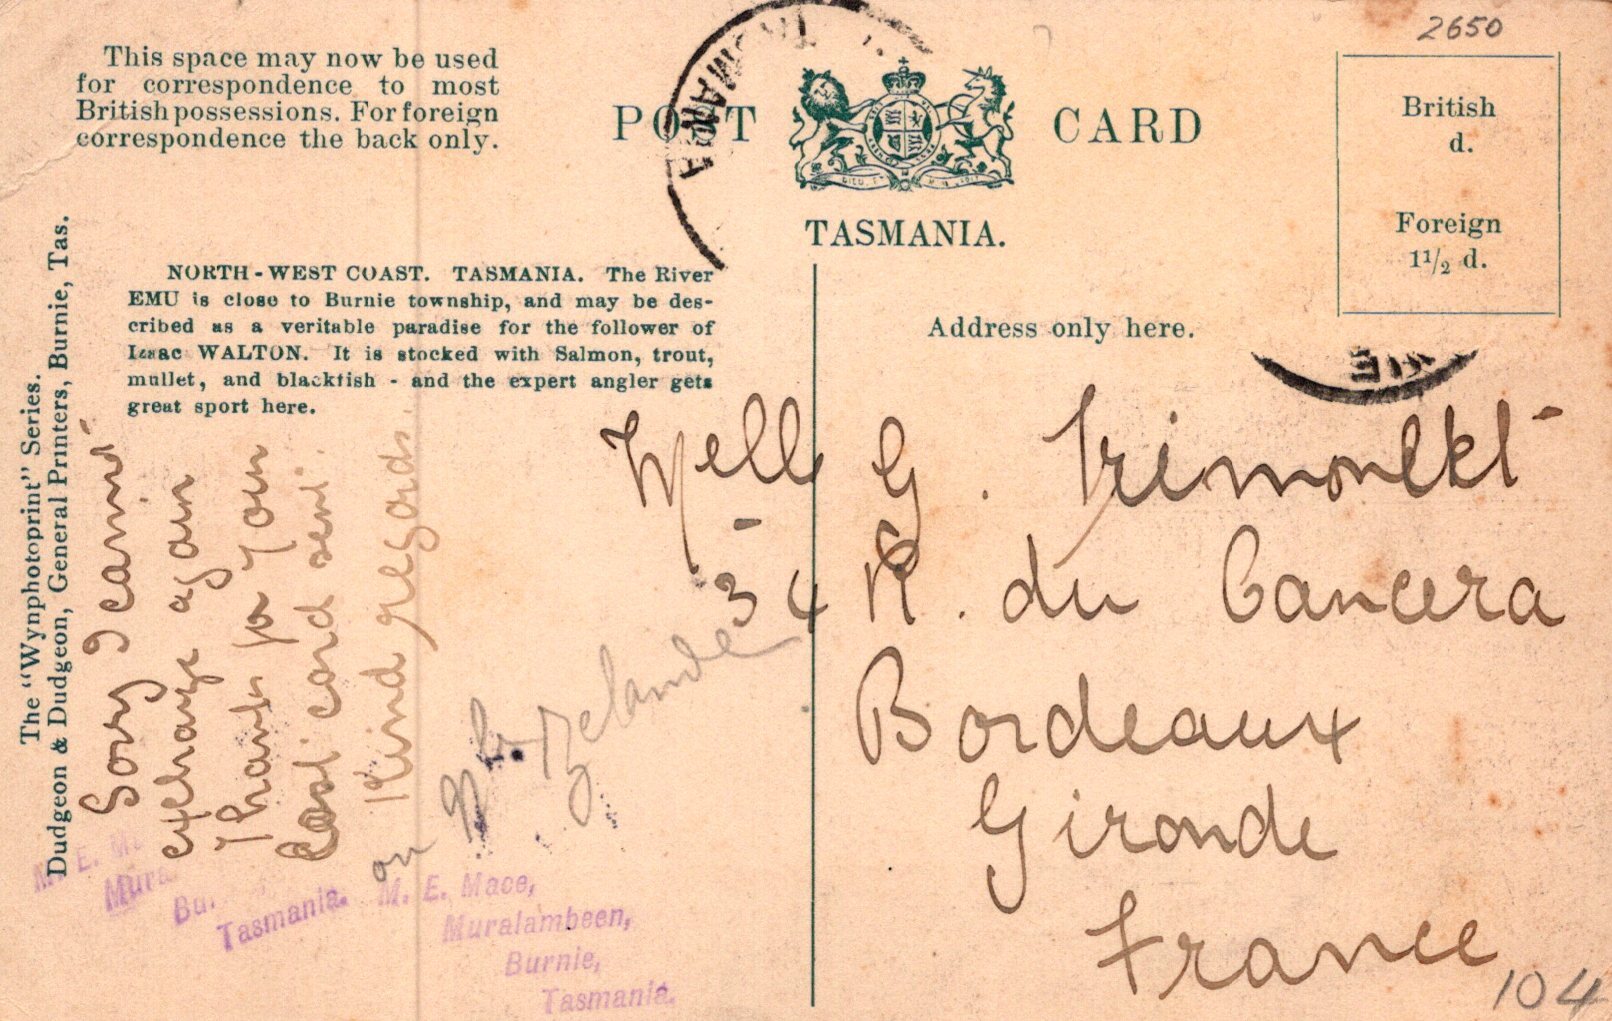 2650
This space may now be used
for correspondence to most
British possessions. For foreign
correspondence the back only.
POST CARD
TASMANIA
TASMANIA.
British
d.
Foreign
1 1/2 d.
Address only here.
The "Wynphotoprint" Series.
Dudgeon & Dudgeon, General Printers, Burnie, Tas.
NORTH-WEST COAST. TASMANIA. The River
EMU is close to Burnie township, and may be des-
cribed as a veritable paradise for the follower of
Izaac WALTON. It is stocked with Salmon, trout,
mullet, and blackfish - and the expert angler gets
great sport here.
Sorry I cannot
exchange again
Thanks for your
last card sent.
Kind regards.
on Zelande
Melle G.
34 R. du Cancera
Bordeaux
Gironde
France
104
M. E.
Tasmania.
M. E. Mace,
Muralambeen,
Burnie,
Tasmania.